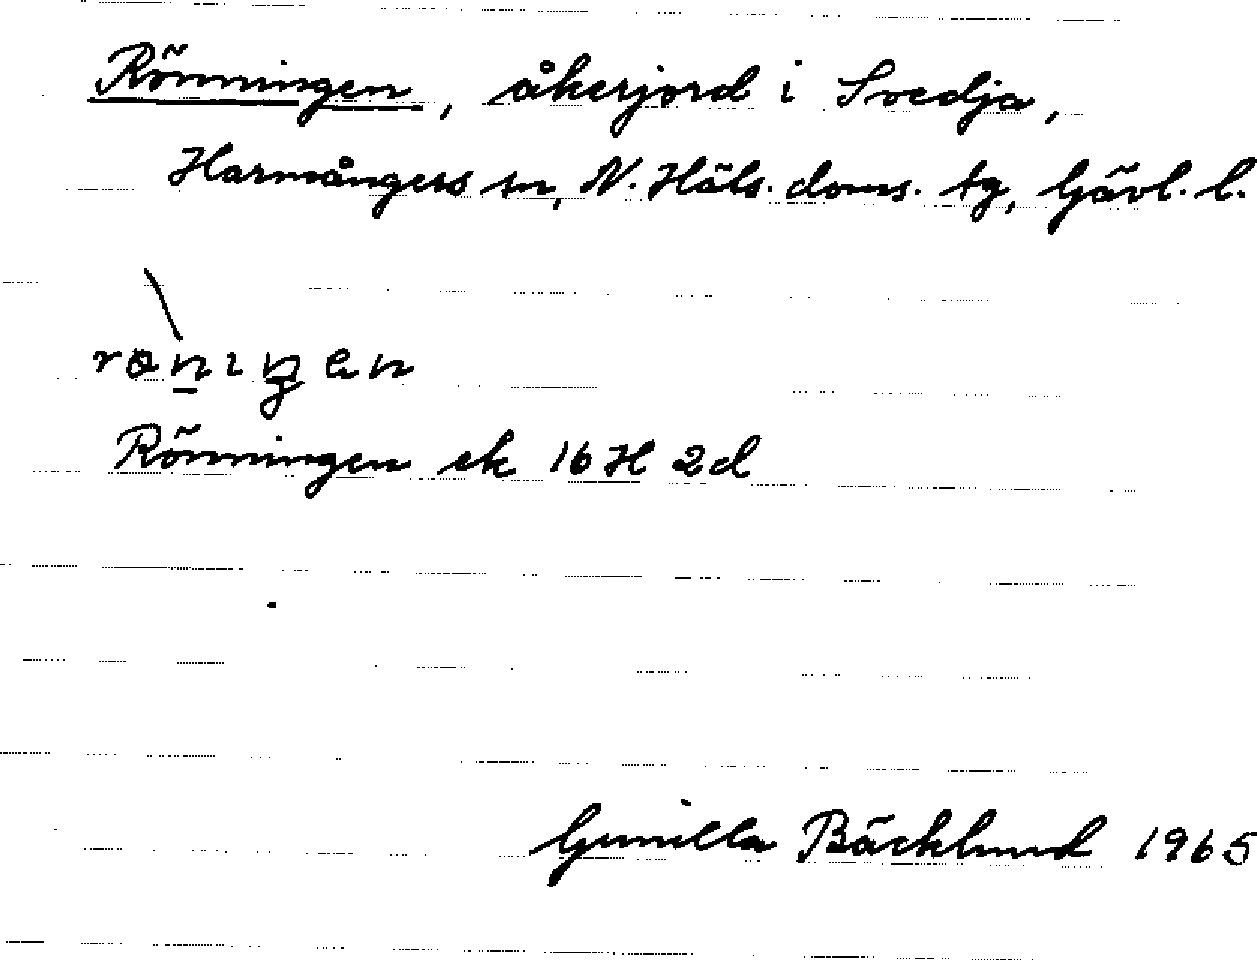 Rönningen, åkerjord i Svedja,
Harmångers sn, N. Häls. doms. tg, Gävl. l.
Rönningen ek 16 H 2d
Gunilla Bäcklund 1965